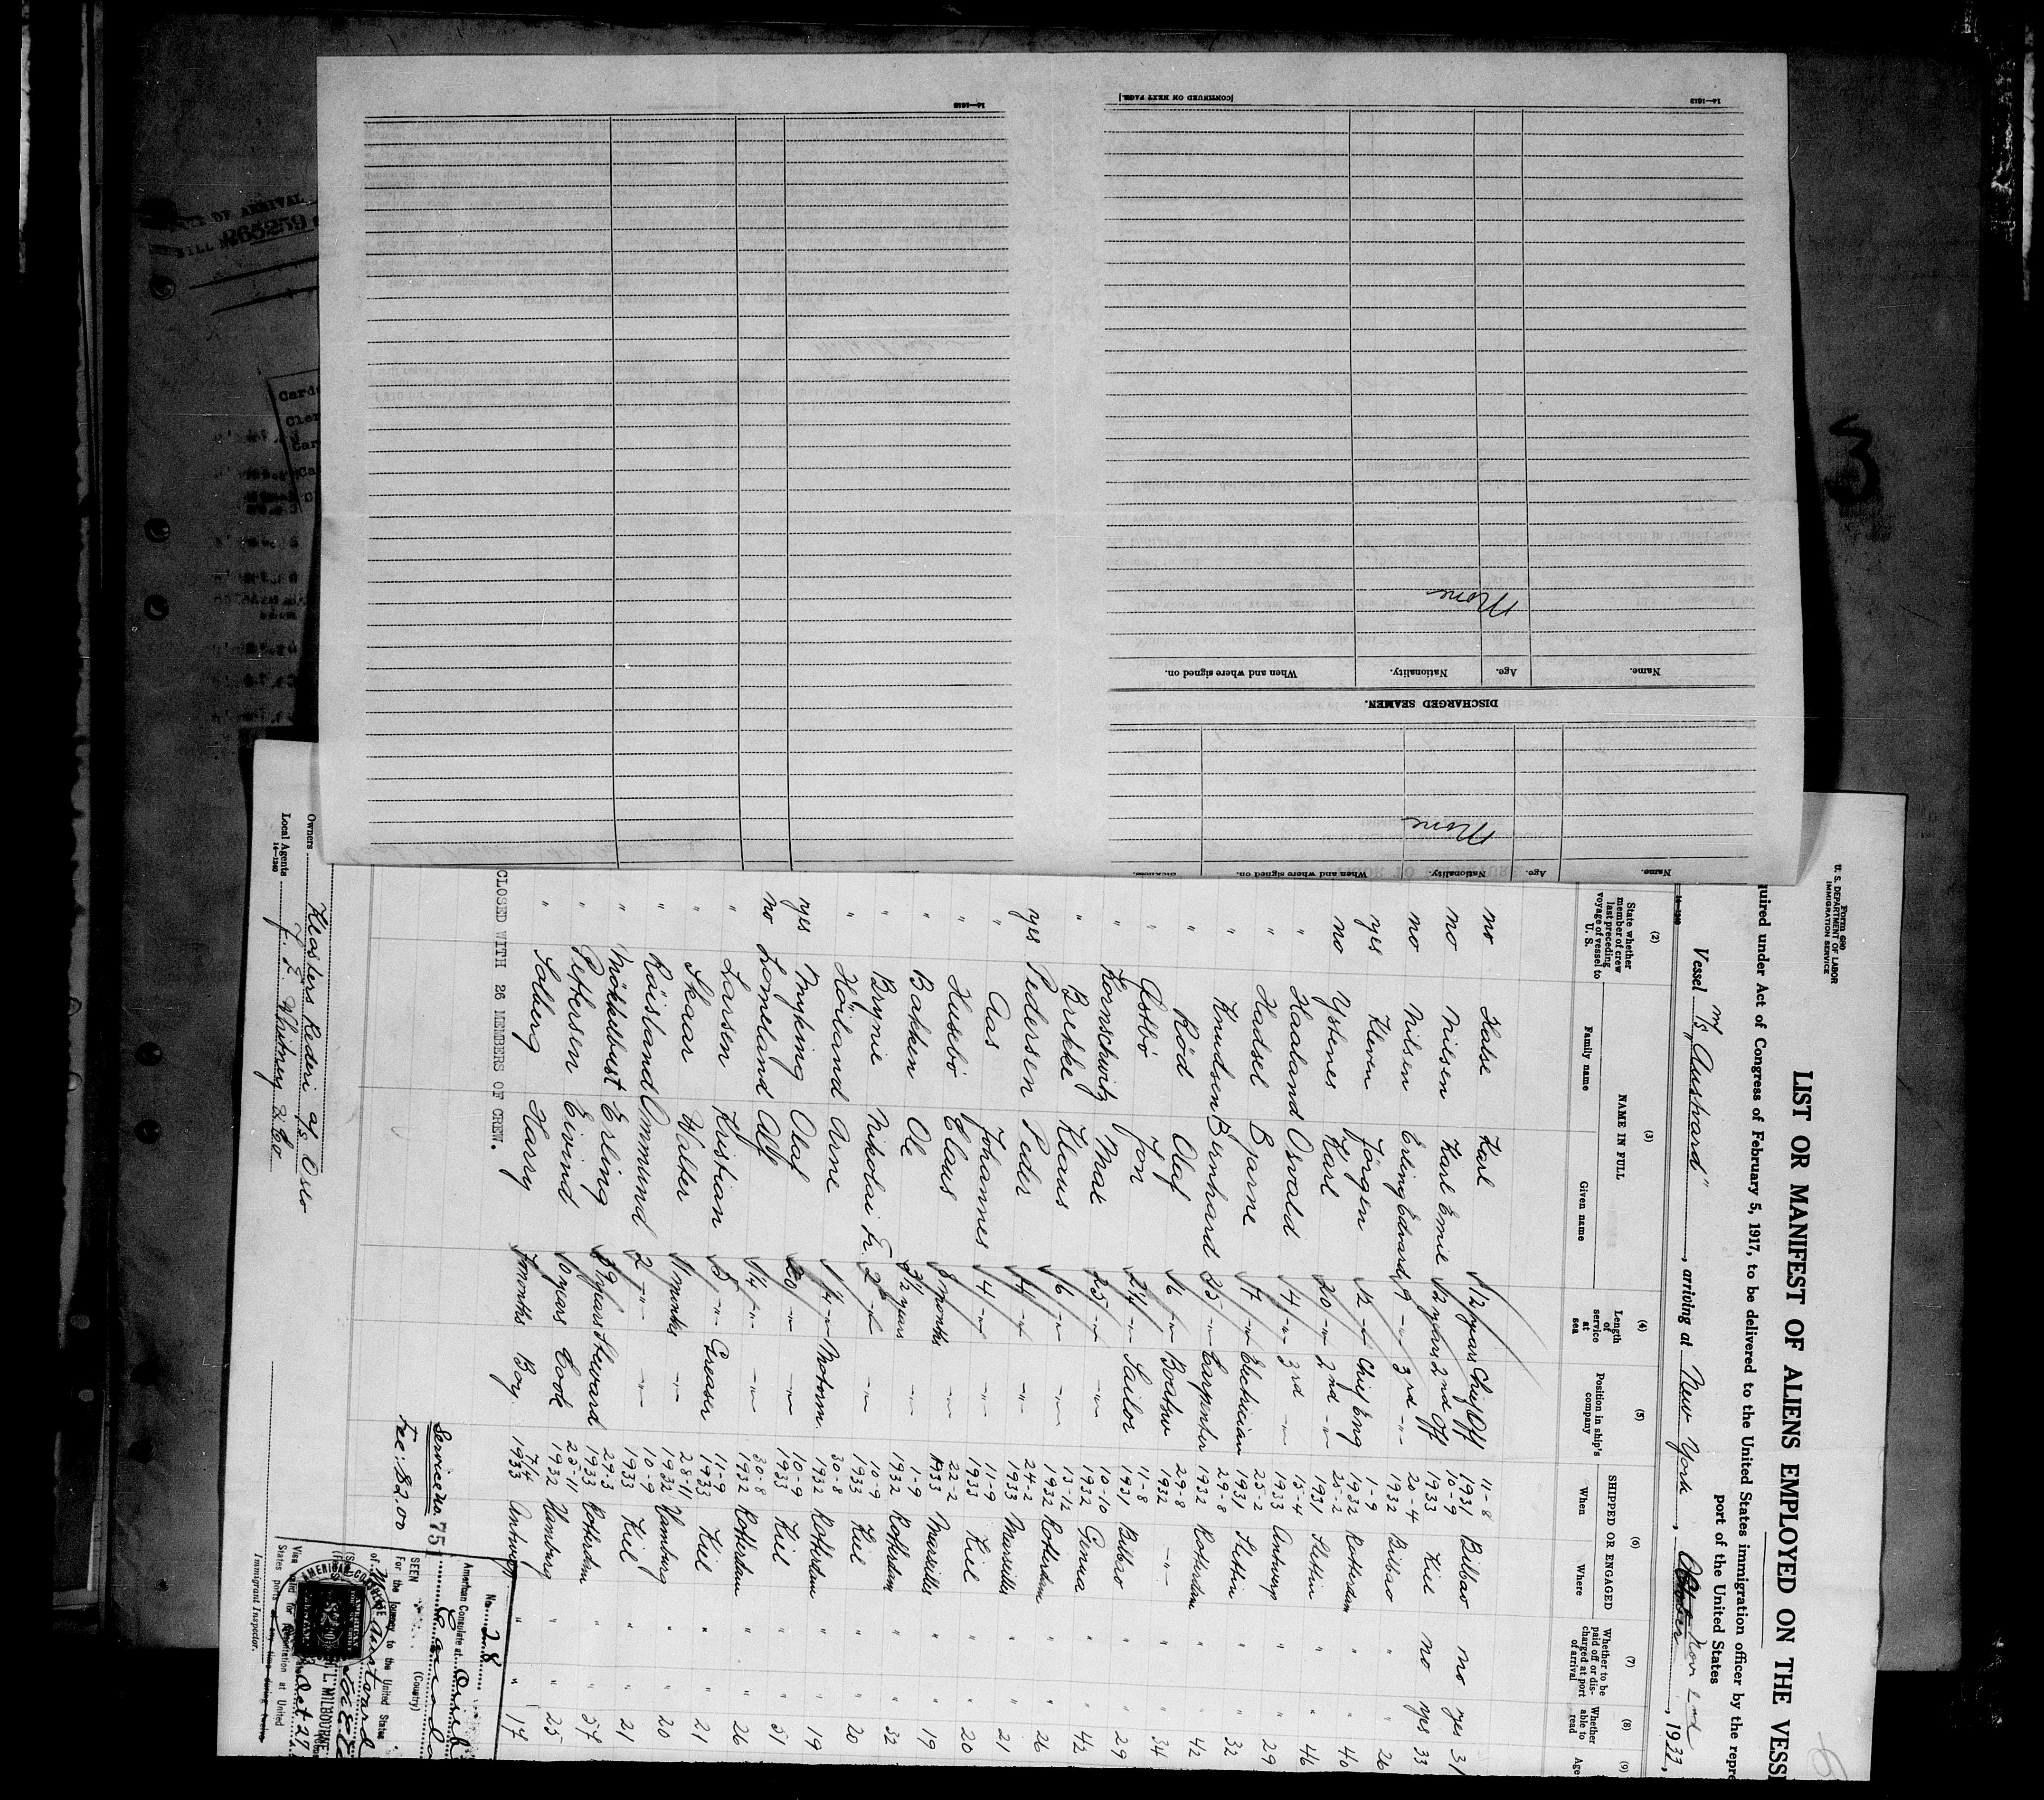 Form 680
U. S. DEPARTMENT OF LABOR
IMMIGRATION SERVICE
LIST OR MANIFEST OF ALIENS EMPLOYED ON THE VESS
quired under Act of Congress of February 5, 1917, to be delivered to the United States immigration officer by the repre
port of the United States
Vessel M/S "Austvard", arriving at New York, Nov 2nd, 1933,
(2) (3) (4) (5) (6) (7) (8) (9)
State whether member of crew last preceding voyage of vessel to U. S. NAME IN FULL Family name Given name Length of service at sea Position in ship's company SHIPPED OR ENGAGED When Where Whether to be paid off or discharged at port of arrival Whether able to read Age
no Halse Karl 12 years Chief Off 11-8 1931 Bilbao no yes 31
no Nilsen Karl Emil 12 years 2nd Off 10-9 1933 Kiel no yes 33
no Nilsen Erling Edvard 9 -"- 3rd -"- 20-4 1932 Bilbao " " 26
yes Kleven Jörgen 12 -"- Chief Eng 1-9 1932 Rotterdam " " 40
no Ystenes Karl 20 -"- 2nd -"- 25-2 1931 Stettin " " 46
" Haaland Osvald 14 -"- 3rd -"- 15-4 1933 Antwerp " " 29
" Hadsel Bjarne 17 -"- Electrician 25-2 1931 Stettin " " 32
" Knudsen Bernhard 25 -"- Carpenter 29-8 1932 Rotterdam " " 42
" Röd Olaf 16 -"- Boatsw 29-8 1932 -"- " " 34
" Ostbö Jon 2 1/4 -"- Sailor 11-8 1931 Bilbao " " 29
" Kornschwitz Max 25 -"- -"- 10-10 1932 Genua " " 42
" Brekke Klaus 6 -"- -"- 13-12 1932 Rotterdam " " 26
yes Pedersen Peder 4 -"- -"- 24-2 1933 Marseilles " " 21
" Aas Johannes 4 -"- -"- 11-9 1933 Kiel " " 20
" Husebö Claus 8 months -"- 22-2 1933 Marseilles " " 19
" Bakken Ole 3 1/2 years -"- 1-9 1932 Rotterdam " " 32
" Brynie Nikolai K. 2 -"- -"- 10-9 1933 Kiel " " 20
" Höiland Arne 1/4 -"- Motorm. 30-8 1932 Rotterdam " " 19
yes Myking Olaf 20 -"- -"- 10-9 1933 Kiel " " 31
no Lomeland Alf 1/4 -"- -"- 30-8 1932 Rotterdam " " 26
" Larsen Kristian 5 -"- Greaser 11-9 1933 Kiel " " 21
" Skaar Halter 11 months -"- 28-11 1932 Hamburg " " 20
" Röisland Ommund 2 -"- -"- 10-9 1933 Kiel " " 21
" Mökkelbust Erling 39 years Steward 29-3 1933 Rotterdam " " 57
" Pettersen Eivind 10 years Cook 25-11 1932 Hamburg " " 25
" Solberg Harry 7 months Boy 7/4 1933 Antwerp " " 17
CLOSED WITH 26 MEMBERS OF CREW.
Service no. 75
Fee: $2.00
No. 28
American Consulate at
SEEN Canada
(Country)
For the journey to the United States
of M/S Austvard
AMERICAN CONSULATE
L. MILBOURNE
Oct. 27
Immigrant Inspector.
Owners Klosters Rederi a/s Oslo
Local Agents J. E. Whitney & Co
14—1240
Name. Age. Nationality. When and where signed on.
None
DISCHARGED SEAMEN.
Name. Age. Nationality. When and where signed on.
None
[CONTINUED ON NEXT PAGE.]
14—1613
14—1613
OF ARRIVAL
Card
Cler
Car
Ca
3